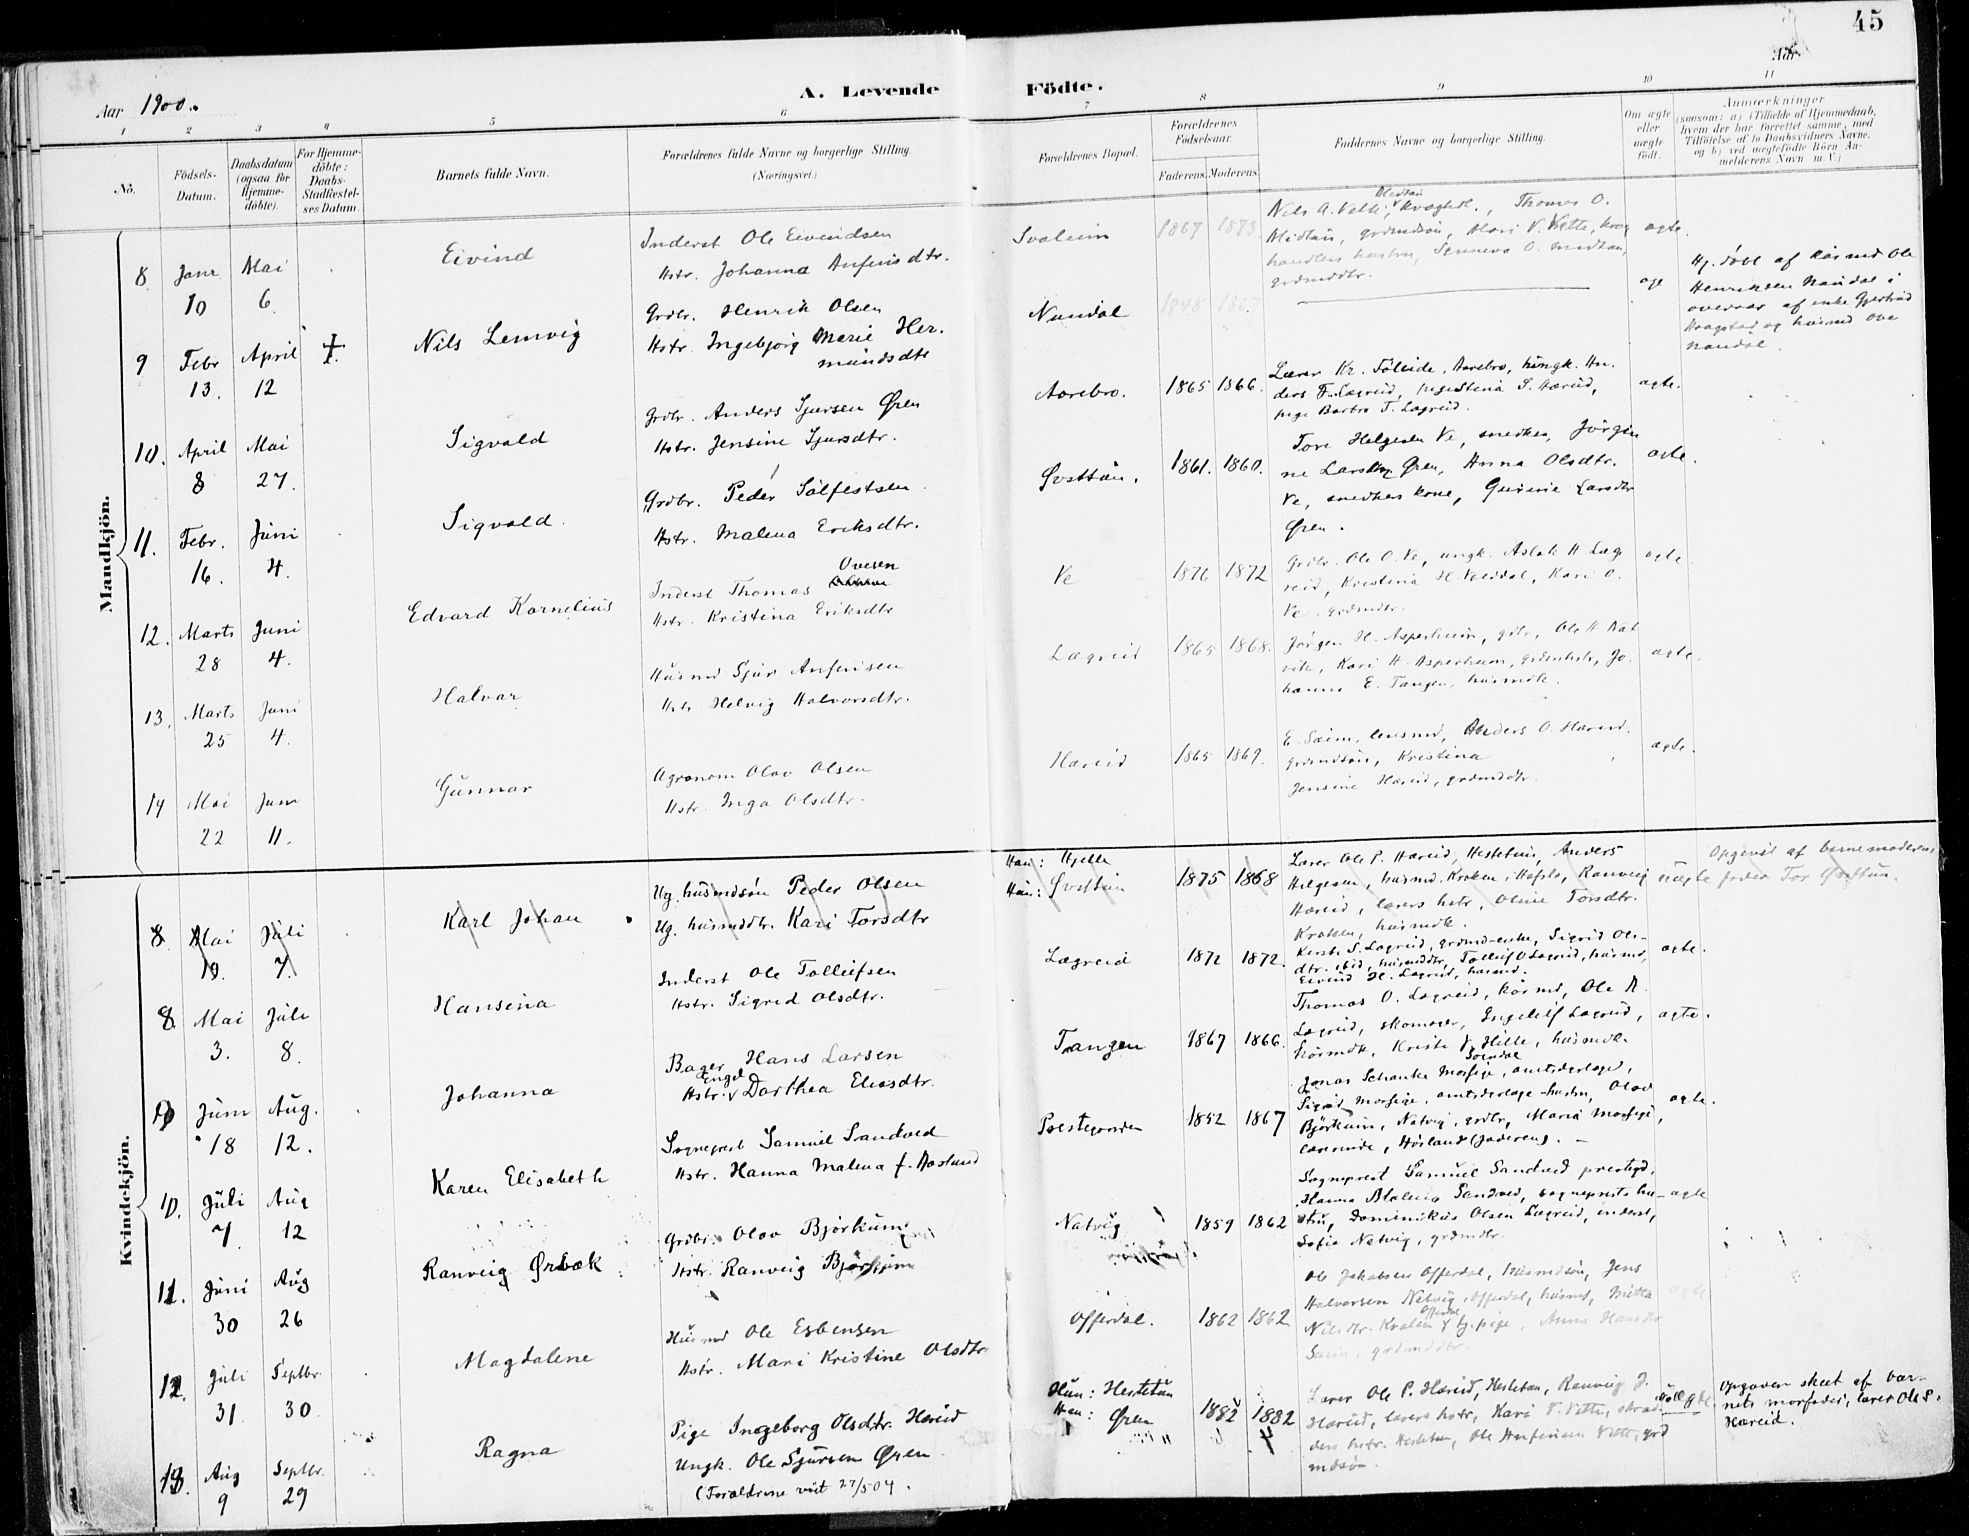 45
Aar 1900.
Aar
A. Levende Födte.
1 2 3 4 5 6 7 8 9 10 11
Nö.
Födsels-Datum.
Daabsdatum (ogsaa for Hjemmedöbte).
For Hjemmedöbte: Daabs-Stadfæstelses Datum.
Barnets fulde Navn.
Forældrenes fulde Navne og borgerlige Stilling.
(Næringsvei.)
Forældrenes Bopæl.
Forældrenes Födselsaar.
Faderens. Moderens.
Faddernes Navne og borgerlige Stilling.
Om ægte eller uægte födt.
Anmærkninger
(saasom: a) i Tilfælde af Hjemmedaab, hvem der har forrettet samme, med Tilföielse af to Daabsvidners Navne, og b) ved uægtefödte Börn Anmelderens Navn m. V.)
Mandkjön.
8 Janr. 10 Mai 6.
Eivind
Inderst Ole Eivindsen
Hstr. Johanna Anfinsdtr.
Svaleim 1867 1873
Nils A. Vette, kræghdl., Thomas O.
Midtun, grdmdsön, Mari V. Vette, kræg
handlers hustru, Senneva O. Midtun,
grdmddtr.
ægte.
9 Febr 13. April 12
Nils Lemvig
Grdbr. Henrik Olsen
Hstr. Ingebjörg Marie Her.
mundsdtr
Nundal 1848 1867
ægte
Hj. döbt af kårmd Ole
Henriksen Nundal i
overvær af enke Gjertrud
Kragstad og husmd Ove
Nundal.
10. April 8 Mai 27.
Sigvald
Grdbr. Anders Sjursen Øren
Hstr. Jensine Sjursdtr.
Aarebro. 1865 1866.
Lærer Kr. Tölleide, Aarebro, ungk. An.
ders T. Lægreid, pige Stina S. Hæreid,
pige Barbra T. Lægreid.
ægte.
11. Febr. 16. Juni 4.
Sigvald.
Grdbr. Peder Sölfestsen
Hstr. Malena Eriksdtr.
Øvsttun. 1861. 1860.
Tore Helgesen Ve, snedker, Jörgi
ne Larsdtr Øren, Anna Olsdtr.
Ve, snedkers kone, Gurine Larsdtr
Øren.
ægte.
12. Marts 28 Juni 4.
Edvard Kornelius
Inderst Thomas Ovesen
Hstr. Kristina Eriksdtr
Ve 1876 1872
Grdbr. Ole O. Ve, ungk. Aslak H. Læg
reid, Kristina H. Nundal, Kari O.
Ve, grdmdtr.
ægte
13. Marts 25 Juni 4.
Halvar
Husmd Sjur Anfinsen
Hstr. Helvig Halvorsdtr.
Lægreid 1865 1868.
Jörgen H. Asperheim, grdbr., Ole H. Nat
vik, Kari H. Asperheim, grdmhstr, Jo.
hanna E. Tangen, husmdk.
ægte.
14 Mai 22 Juni 11.
Gunnar
Agronom Olav Olsen
Hstr. Inga Olsdtr.
Hæreid 1865 1869.
E. Sæim, lensmd, Anders O. Hæreid.
grdmdsön, Kristina
Jensine Hæreid, grdmddtr.
ægte.
Kvindekjön.
8. Mai 10. Juli 7.
Karl Johan
Ug. husmdsön Peder Olsen
Ug. husmddtr. Kari Torsdtr
Han: Hjelle
Hun: Øvsttun 1875 1868
Lærer Ole P. Hæreid, Hestetun, Anders
Helgesen, husmd. Kroken i Hafslo, Ranveig
Hæreid, lærers hstr, Oline Torsdtr.
Kroken, husmdk.
uægte
Opgivet af barnemoderens
fader Tor Øvsttun.
8. Mai 3. Juli 8.
Hansina
Inderst Ole Tolleifsen
Hstr. Sigrid Olsdtr.
Lægreid 1872 1872.
Kersti S. Lægreid, grdmd-enke, Sigrid Ols-
dtr. ibid, husmddtr, Tolleif O Lægreid, husmd,
Eivind H. Lægreid, husmd.
ægte.
9 Juni 18 Aug. 12.
Johanna
Bager Hans Larsen
Hstr. Engel Dorthea Eliasdtr.
Tangen 1867 1866.
Thomas O. Lægreid, kårmd, Ole A.
Lægreid, skomager, Ingeleif Lægreid,
kårmdk, Kristi V. Hille, husmdk.
ægte.
10. Juli 7. Aug 12
Karen Elisabeth
Sogneprest Samuel Sandved
Hstr. Hanna Malena f. Aasland
Prestegarden 1852 1867
Jonas Schanke Morsige, amtsdyrlæge,
Sigrid Morsige, amtsdyrlæge-hustru, Olav
Björkum, Natvig, grdbr, Maria Morsige,
lærerinde, Höiland (Jæderen). -
ægte.
11. Juni 30 Aug 26
Ranveig Ørbæk
Grdbr. Olav Björkum
Hstr. Ranveig Björkum
Natvig 1859 1862
Sogneprest Samuel Sandved prestegd.
Hanna Malena Sandved, sogneprests hu-
stru, Dominikus Olsen Lægreid, inderst,
Sofie Natvig, grdmdtr.
ægte
12. Juli 31 Septbr. 30.
Magdalene
Husmd Ole Esbensen
Hstr. Mari Kristine Olsdtr
Offerdal. 1862 1862
Ole Jakobsen Offerdal, husmdsön, Jens
Halvorsen Natvig, Offerdal, husmd, Mitta
Nilsdtr. Kvalen, Offerdal, tj. pige, Anna Hansdtr
Sæim, grdmddtr.
ægte
13. Aug 9 Septbr. 29
Ragna
Pige Ingeborg Olsdtr. Hæreid
Ungk. Ole Sjursen Øren
(Forældrene viet 27/5 04.
Hun: Hestetun
Han: Øren 1882 1882
Lærer Ole P. Hæreid, Hestetun, Ranveig J.
Hæreid, lærers hstr, Kari T. Vette, skræd
ders hstr. Hestetun, Ole Anfinsen Vette, grd
mdsön.
uægte
Opgaven skeet af bar-
nets morfader, lærer Ole P.
Hæreid.